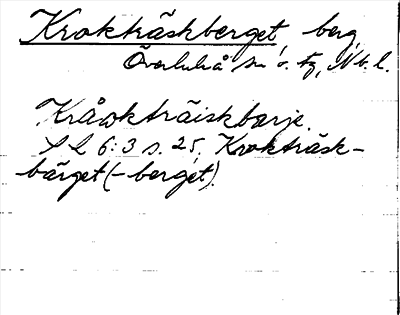 Krokträskberget, berg,
Överluleå sn o. tg, Nb. l.
Kråokträiskbarje.
S L 6:3 s. 25. Krokträsk-
bärget (-berget).